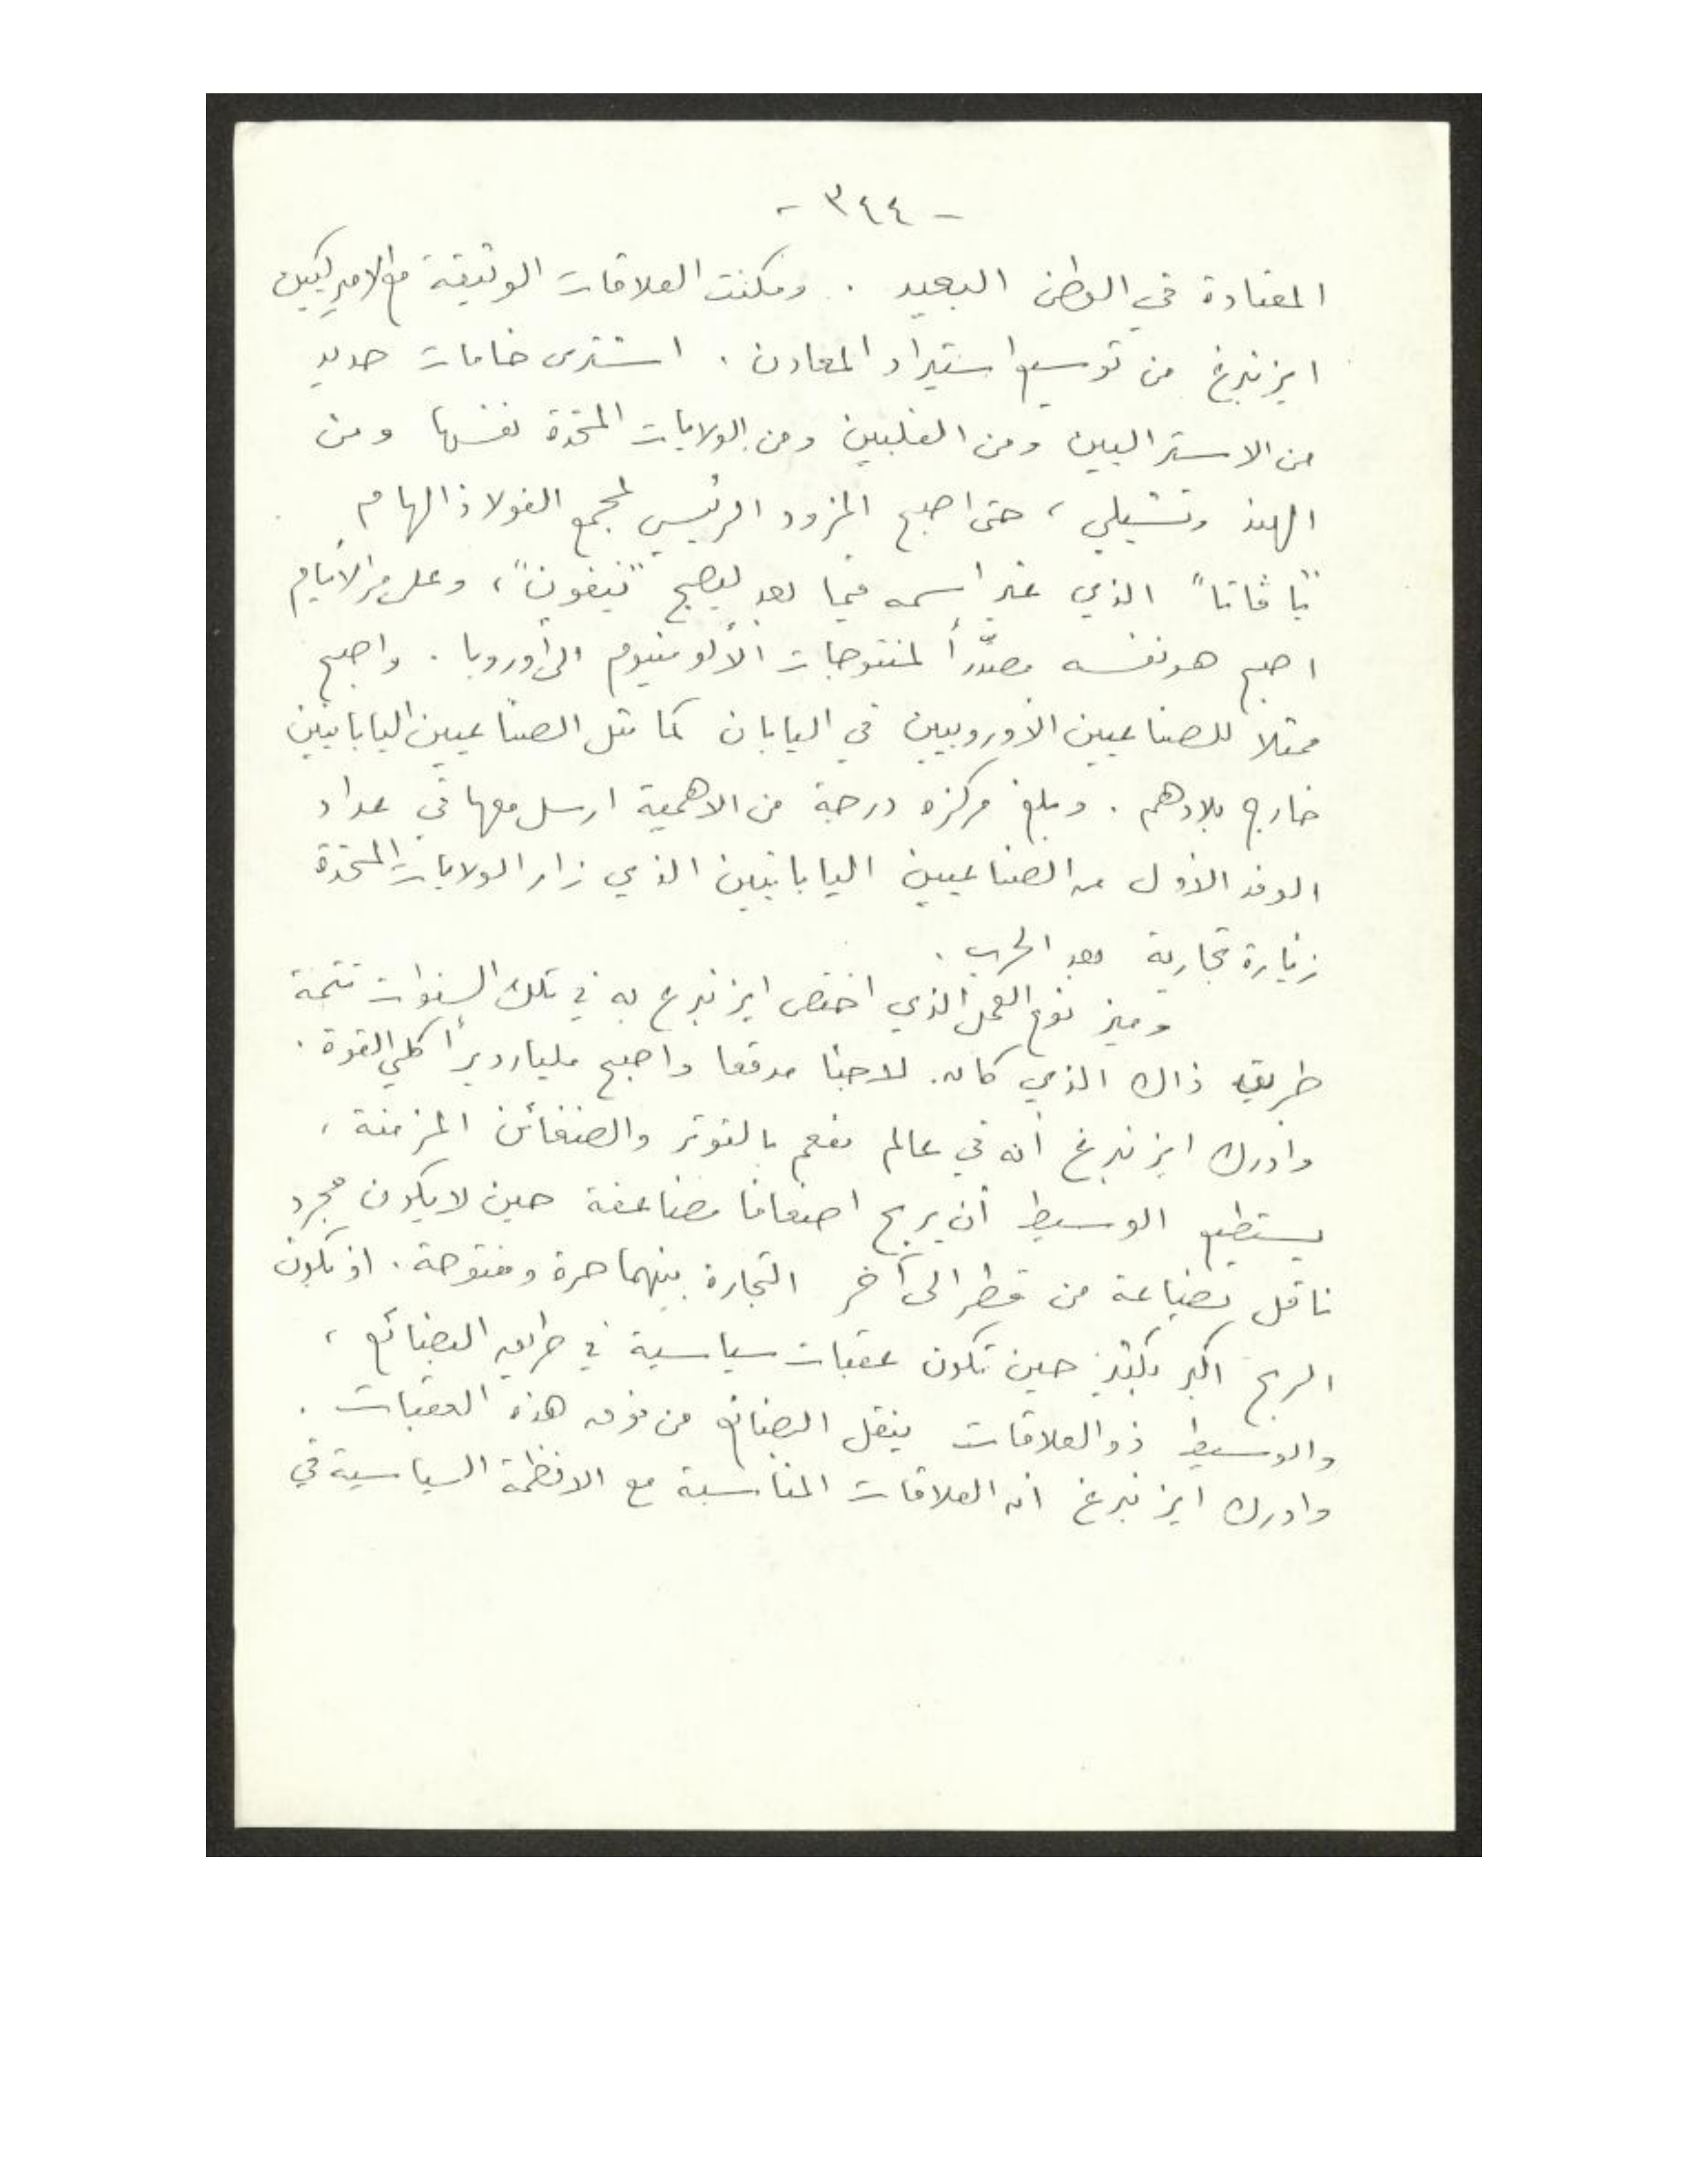 - ٣٤٤ -
المعتادة في الوطن البعيد . ومكنت العلاقات الوثيقة مع الاميركيين
ايزنبرغ من توسيع استيراد المعادن . اشترى خامات حديد
من الاستراليين ومن الفلبين ومن الولايات المتحدة نفسها ومن
الهند وتشيلي ، حتى اصبح المزود الرئيسي لمجمع الفولاذ الهام
"ياڤاتا" الذي غير اسمه فيما بعد ليصبح "نيفون"، وعلى مر الأيام
اصبح هو نفسه مصدّراً لمنتوجات الألومنيوم الى أوروبا . واصبح
ممثلا للصناعيين الأوروبيين في اليابان كما مثل الصناعيين اليابانيين
خارج بلادهم . وبلغ مركزه درجة من الاهمية ارسل معها في عداد
الوفد الأول من الصناعيين اليابانيين الذي زار الولايات المتحدة
زيارة تجارية بعد الحرب .
وميز نوع العمل الذي اختص ايزنبرغ به في تلك السنوات تتمة
طريق ذاك الذي كان لاجئا مدقعا واصبح مليارديراً كلي القوة .
وادرك ايزنبرغ أنه في عالم مفعم بالتوتر والضغائن المزمنة ،
يستطيع الوسيط أن يربح اضعافا مضاعفة حين لا يكون مجرد
ناقل بضاعة من قطر الى آخر التجارة بينهما حرة ومفتوحة . اذ يكون
الربح اكبر بكثير حين تكون عقبات سياسية في طريق البضائع ،
والوسيط ذو العلاقات ينقل البضائع من فوق هذه العقبات .
وادرك ايزنبرغ ان العلاقات المناسبة مع الانظمة السياسية في